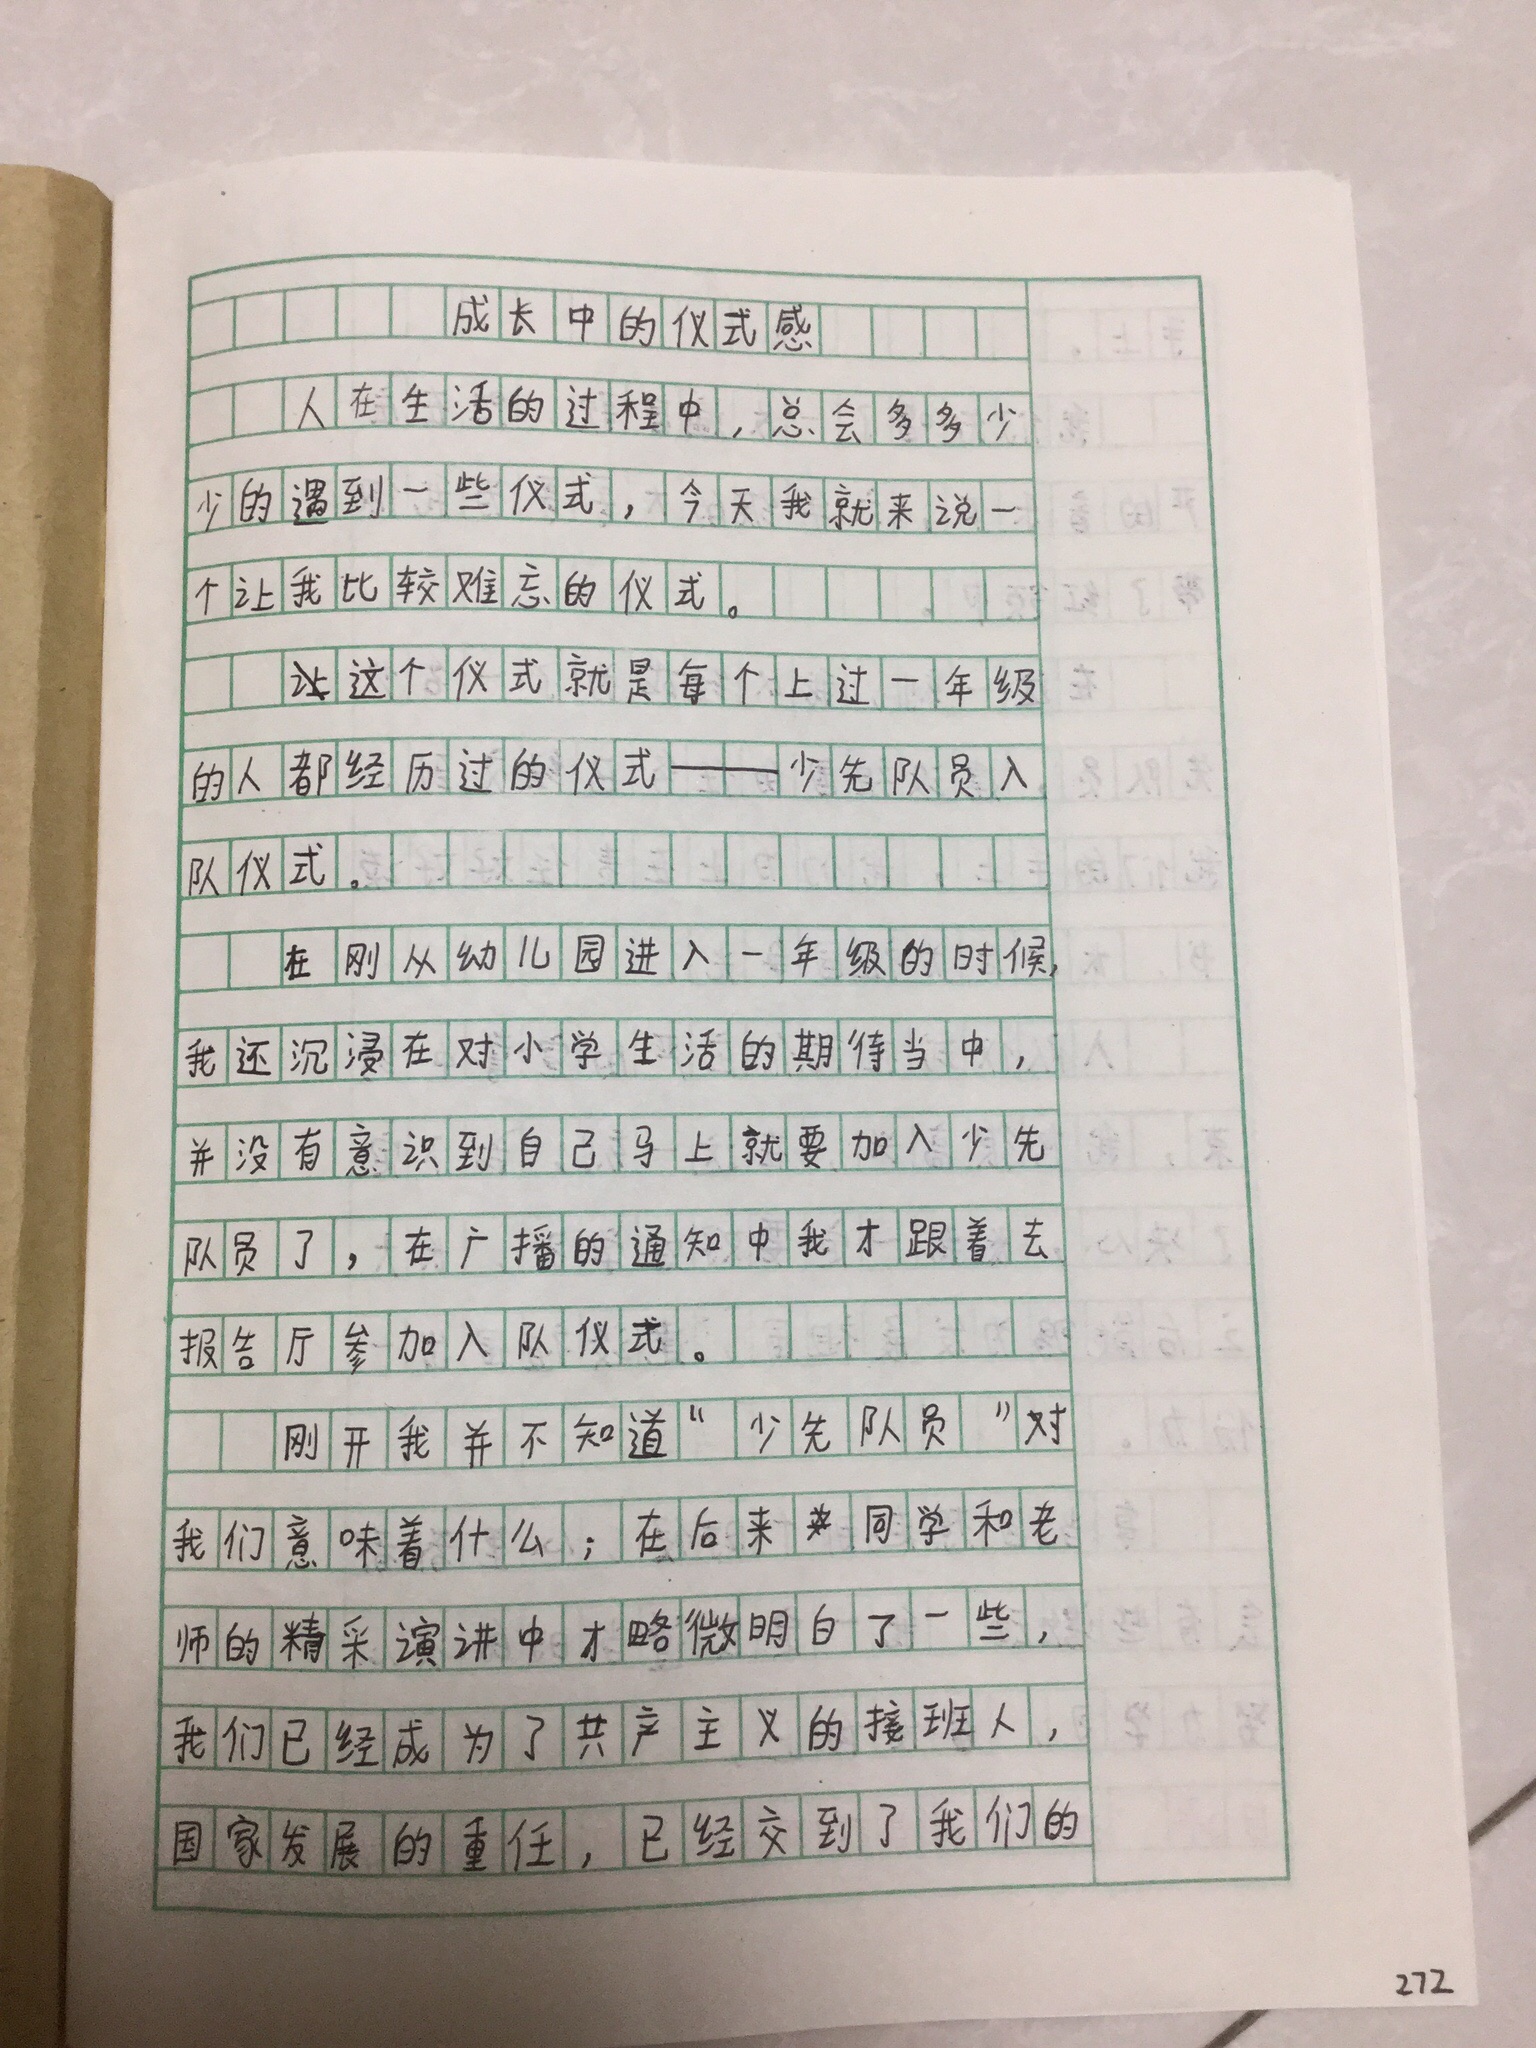 成长中的仪式感
人在生活的过程中，总会多多少
少的遇到一些仪式，今天我就来说一
个让我比较难忘的仪式。
这个仪式就是每个上过一年级
的人都经历过的仪式——少先队员入
队仪式。
在刚从幼儿园进入一年级的时候，
我还沉浸在对小学生活的期待当中，
并没有意识到自己马上就要加入少先
队员了，在广播的通知中我才跟着去
报告厅参加入队仪式。
刚开我并不知道“少先队员”对
我们意味着什么；在后来同学和老
师的精采演讲中才略微明白了一些，
我们已经成为了共产主义的接班人，
国家发展的重任，已经交到了我们的
272